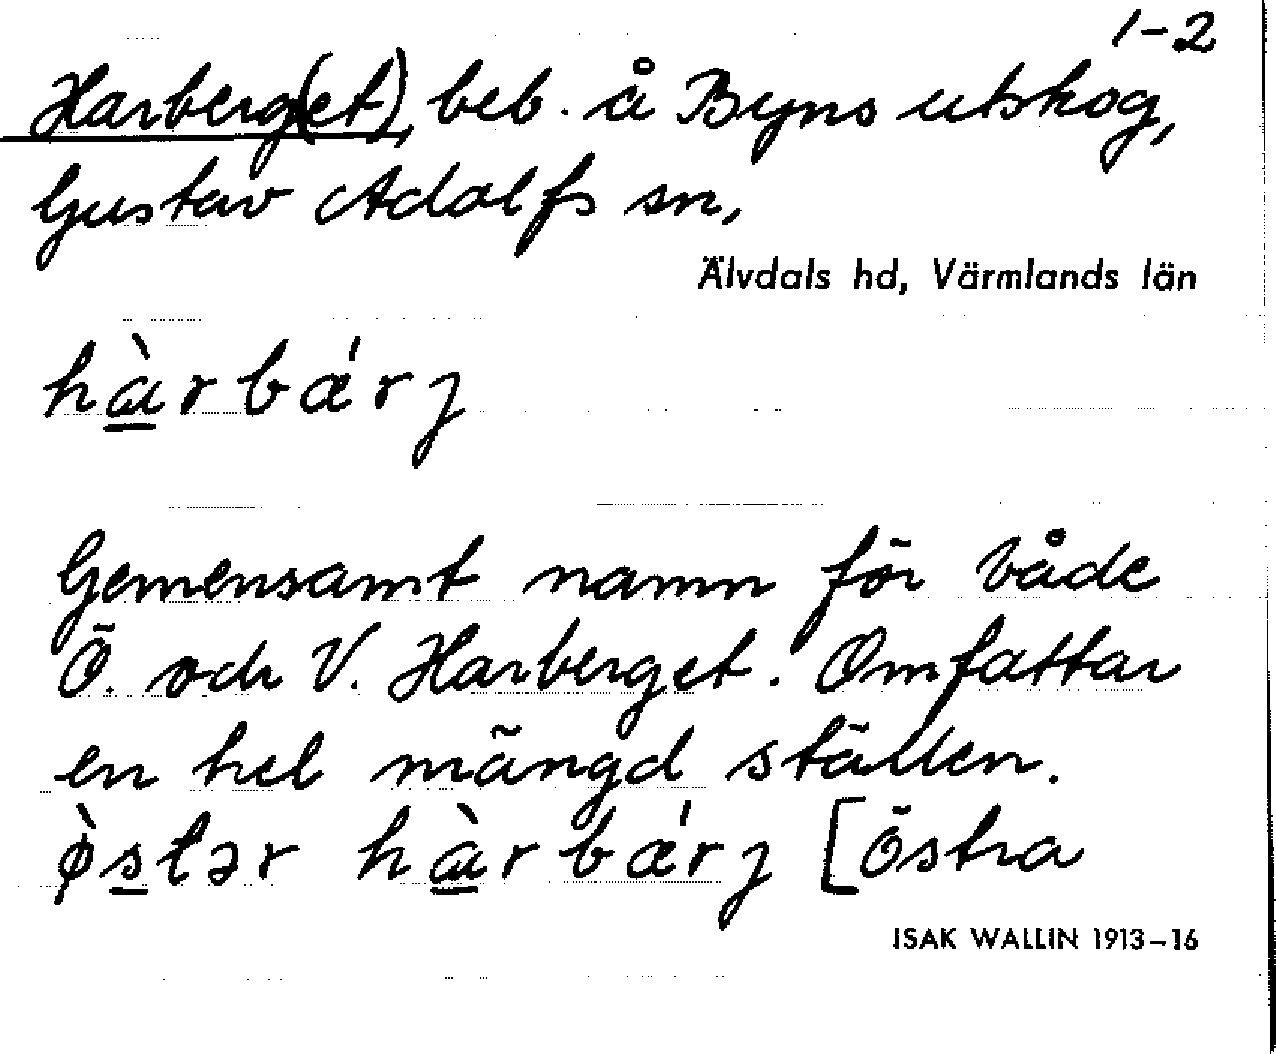 1-2
Harberg(et), beb. å Byns utskog,
Gustav Adolfs sn,
Älvdals hd, Värmlands län
hàrbǽrȷ
Gemensamt namn för både
Ö. och V. Harberget. Omfattar
en hel mängd ställen.
ø̀stər hàrbǽrȷ [östra
ISAK WALLIN 1913–16